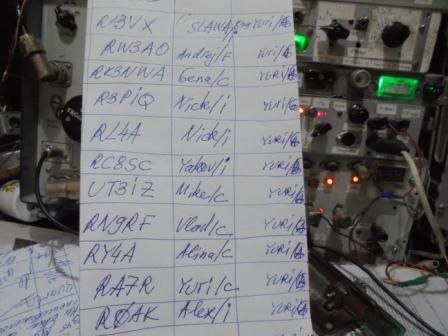 RA3VX "SLAWA Yuri/G
RW3AO Andrej/F Yuri/G
RK3NWA Gena/C YURi/G
R3PiQ Nick/i Yuri/G
RL4A Nick/i YURi/G
RC8SC Yakov/i YURi/G
UT3iZ Mike/C YURi/G
RN9RF Vlad/C YURi/G
RY4A Alina/C YURi/G
RA7R Yuri/C YURi/G
RØAK Alex/i YURi/G